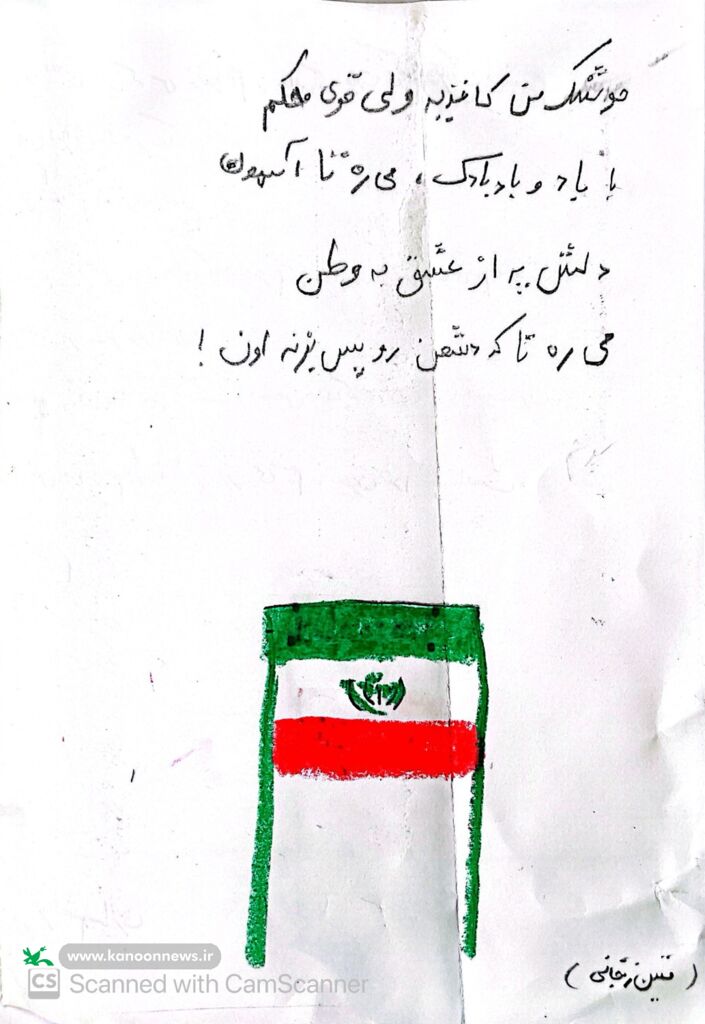 موشک من کاغذیه ولی قوی محکم
با باد و بادبادک، می ره تا آسمون
دلش پر از عشق به وطن
می ره تا که دشمن رو پس بزنه اون !
www.kanoonnews.ir
CS Scanned with CamScanner